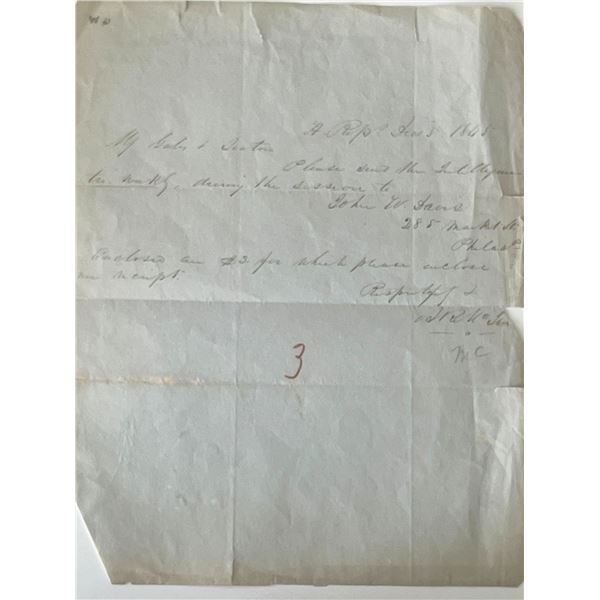 H Rep. Dec 3 1845
Gales & Seaton
Please send the Intelligencer
tri weekly, during the session to
John W. Davis
285 Market St
Philada
Enclosed are $2 for which please enclose
me receipt.
Respectfy &
MC
3